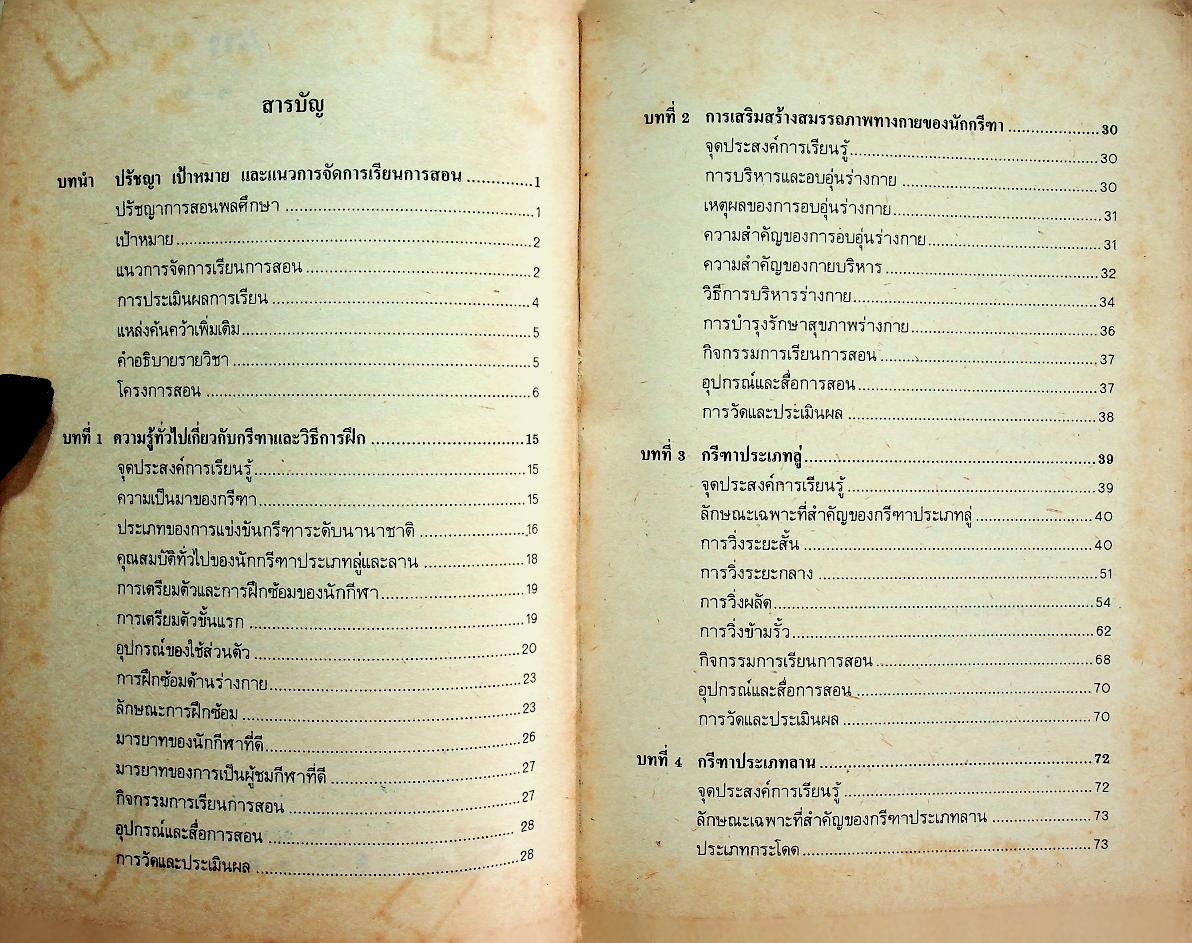 สารบัญ
บทนำ ปรัชญา เป้าหมาย และแนวการจัดการเรียนการสอน .............1
ปรัชญาการสอนพลศึกษา ..................................................1
เป้าหมาย......................................................................2
แนวการจัดการเรียนการสอน .............................................2
การประเมินผลการเรียน ....................................................4
แหล่งค้นคว้าเพิ่มเติม.........................................................5
คำอธิบายรายวิชา ............................................................5
โครงการสอน .................................................................6
บทที่ 1 ความรู้ทั่วไปเกี่ยวกับกรีฑาและวิธีการฝึก ..............................15
จุดประสงค์การเรียนรู้......................................................15
ความเป็นมาของกรีฑา.....................................................15
ประเภทของการแข่งขันกรีฑาระดับนานาชาติ .....................16
คุณสมบัติทั่วไปของนักกรีฑาประเภทลู่และลาน ....................18
การเตรียมตัวและการฝึกซ้อมของนักกีฬา............................19
การเตรียมตัวขั้นแรก ......................................................19
อุปกรณ์ของใช้ส่วนตัว .....................................................20
การฝึกซ้อมด้านร่างกาย..................................................23
ลักษณะการฝึกซ้อม .......................................................23
มารยาทของนักกีฬาที่ดี...................................................26
มารยาทของการเป็นผู้ชมกีฬาที่ดี ......................................27
กิจกรรมการเรียนการสอน ...............................................27
อุปกรณ์และสื่อการสอน ..................................................28
การวัดและประเมินผล ....................................................28
บทที่ 2 การเสริมสร้างสมรรถภาพทางกายของนักกรีฑา ..................30
จุดประสงค์การเรียนรู้......................................................30
การบริหารและอบอุ่นร่างกาย ...........................................30
เหตุผลของการอบอุ่นร่างกาย...........................................31
ความสำคัญของการอบอุ่นร่างกาย....................................31
ความสำคัญของกายบริหาร .............................................32
วิธีการบริหารร่างกาย.....................................................34
การบำรุงรักษาสุขภาพร่างกาย........................................36
กิจกรรมการเรียนการสอน ...............................................37
อุปกรณ์และสื่อการสอน...................................................37
การวัดและประเมินผล ....................................................38
บทที่ 3 กรีฑาประเภทลู่..............................................................39
จุดประสงค์การเรียนรู้......................................................39
ลักษณะเฉพาะที่สำคัญของกรีฑาประเภทลู่ .........................40
การวิ่งระยะสั้น ..............................................................40
การวิ่งระยะกลาง ...........................................................51
การวิ่งผลัด....................................................................54
การวิ่งข้ามรั้ว.................................................................62
กิจกรรมการเรียนการสอน................................................68
อุปกรณ์และสื่อการสอน ..................................................70
การวัดและประเมินผล ....................................................70
บทที่ 4 กรีฑาประเภทลาน ..........................................................72
จุดประสงค์การเรียนรู้ .....................................................72
ลักษณะเฉพาะที่สำคัญของกรีฑาประเภทลาน .....................73
ประเภทกระโดด.............................................................73